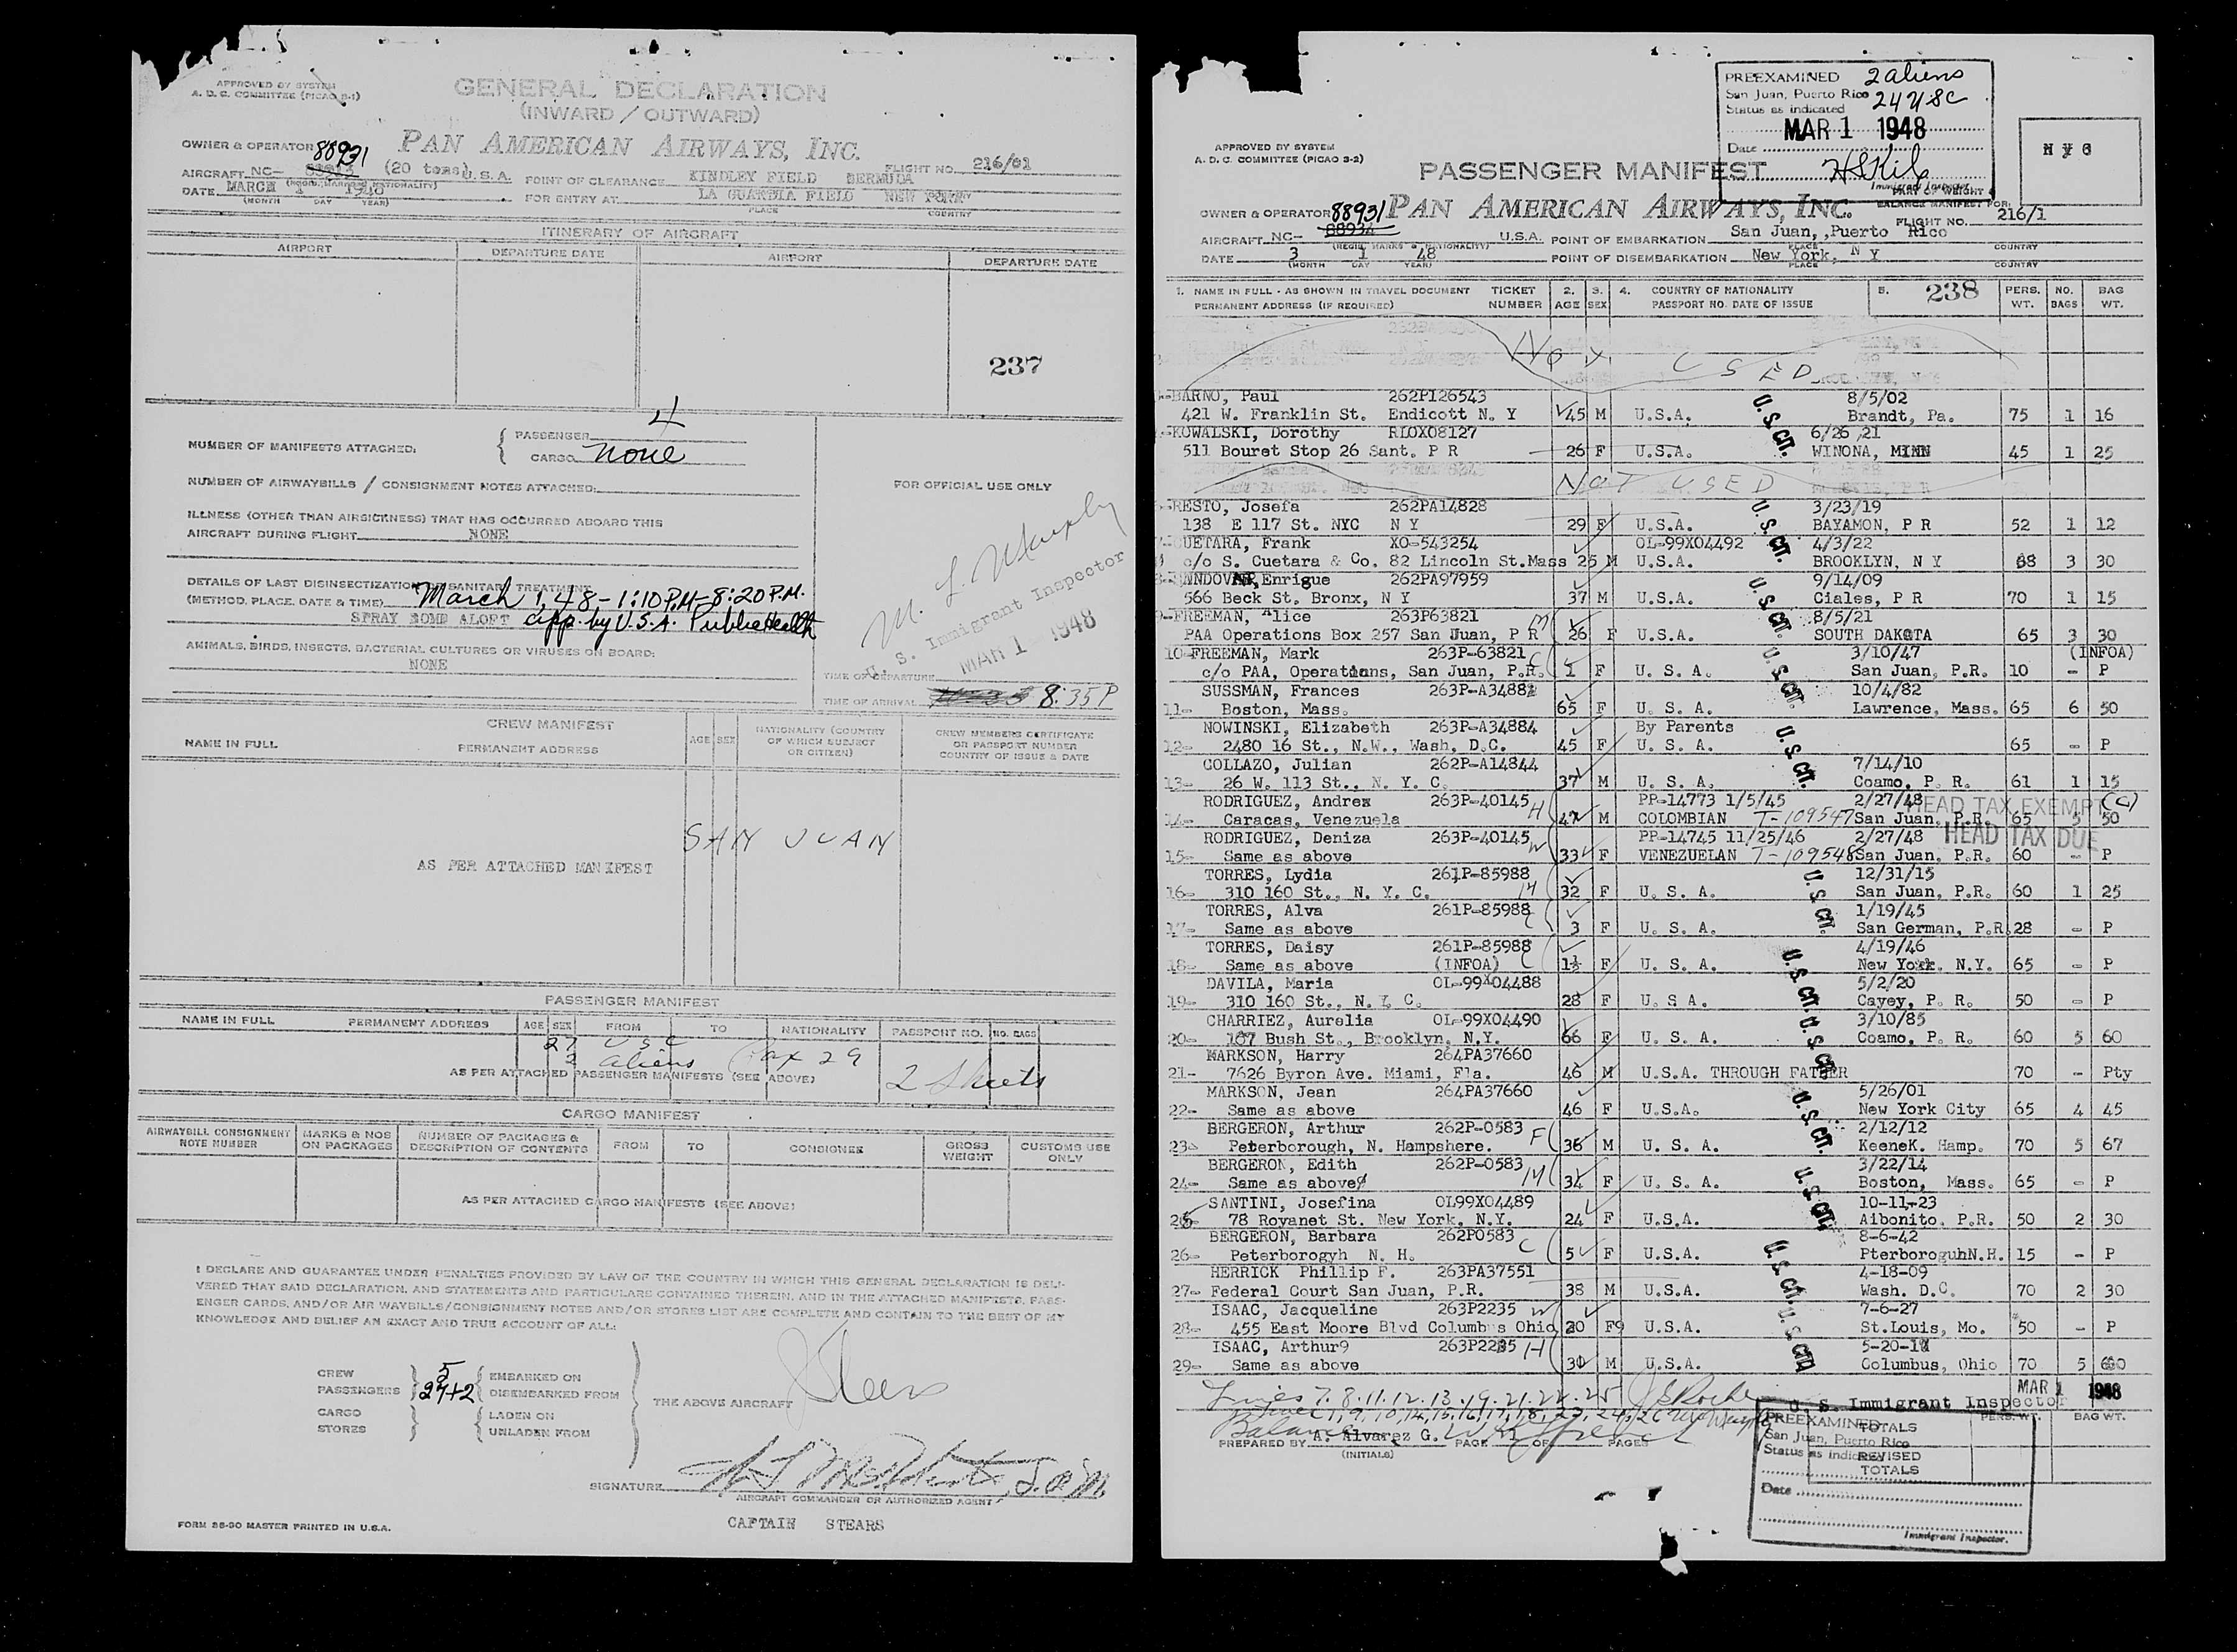 APPROVED BY SYSTEM
A. D. C. COMMITTEE (PICAO S-1)
GENERAL DECLARATION
(INWARD / OUTWARD)
OWNER & OPERATOR PAN AMERICAN AIRWAYS, INC.
88931
AIRCRAFT NC- (20 tons) U.S.A. POINT OF CLEARANCE KINDLEY FIELD BERMUDA FLIGHT NO. 216/01
(REGIS. MARKS & NATIONALITY)
DATE MARCH 1 FOR ENTRY AT LA GUARDIA FIELD NEW YORK
(MONTH DAY YEAR) PLACE COUNTRY
ITINERARY OF AIRCRAFT
AIRPORT DEPARTURE DATE AIRPORT DEPARTURE DATE
237
NUMBER OF MANIFESTS ATTACHED: { PASSENGER 4
CARGO none
NUMBER OF AIRWAYBILLS / CONSIGNMENT NOTES ATTACHED:
FOR OFFICIAL USE ONLY
ILLNESS (OTHER THAN AIRSICKNESS) THAT HAS OCCURRED ABOARD THIS
AIRCRAFT DURING FLIGHT NONE
DETAILS OF LAST DISINSECTIZATION OR SANITARY TREATMENT
(METHOD, PLACE, DATE & TIME) March 1, 48 - 1:10 P.M - 8:20 P.M.
SPRAY BOMB ALOFT app. by U.S.A. Public Health
ANIMALS, BIRDS, INSECTS, BACTERIAL CULTURES OR VIRUSES ON BOARD:
NONE
M. L. Murphy
U. S. Immigrant Inspector
MAR 1 1948
TIME OF DEPARTURE
TIME OF ARRIVAL 8:35 P
CREW MANIFEST
NAME IN FULL PERMANENT ADDRESS AGE SEX NATIONALITY (COUNTRY OF WHICH SUBJECT OR CITIZEN) CREW MEMBERS CERTIFICATE OR PASSPORT NUMBER COUNTRY OF ISSUE & DATE
SAN JUAN
AS PER ATTACHED MANIFEST
PASSENGER MANIFEST
NAME IN FULL PERMANENT ADDRESS AGE SEX FROM TO NATIONALITY PASSPORT NO. NO. BAGS
27 USC
2 aliens Pax 29
AS PER ATTACHED PASSENGER MANIFESTS (SEE ABOVE) 2 Sheets
CARGO MANIFEST
AIRWAYBILL CONSIGNMENT NOTE NUMBER MARKS & NOS ON PACKAGES NUMBER OF PACKAGES & DESCRIPTION OF CONTENTS FROM TO CONSIGNEE GROSS WEIGHT CUSTOMS USE ONLY
AS PER ATTACHED CARGO MANIFESTS (SEE ABOVE)
I DECLARE AND GUARANTEE UNDER PENALTIES PROVIDED BY LAW OF THE COUNTRY IN WHICH THIS GENERAL DECLARATION IS DELI-
VERED THAT SAID DECLARATION, AND STATEMENTS AND PARTICULARS CONTAINED THEREIN, AND IN THE ATTACHED MANIFESTS, PASS-
ENGER CARDS, AND/OR AIR WAYBILLS/CONSIGNMENT NOTES AND/OR STORES LIST ARE COMPLETE AND CONTAIN TO THE BEST OF MY
KNOWLEDGE AND BELIEF AN EXACT AND TRUE ACCOUNT OF ALL:
CREW 5 EMBARKED ON
PASSENGERS 27+2 DISEMBARKED FROM THE ABOVE AIRCRAFT
CARGO LADEN ON
STORES UNLADEN FROM
SIGNATURE
AIRCRAFT COMMANDER OR AUTHORIZED AGENT
FORM 86-90 MASTER PRINTED IN U.S.A. CAPTAIN STEARS
PREEXAMINED 2 aliens
San Juan, Puerto Rico 24 USC
Status as indicated
MAR 1 1948
Date
Immigrant Inspector
N Y C
APPROVED BY SYSTEM
A. D. C. COMMITTEE (PICAO S-2)
PASSENGER MANIFEST
PART OF WEIGHT &
BALANCE MANIFEST FOR:
OWNER & OPERATOR PAN AMERICAN AIRWAYS, INC. FLIGHT NO. 216/1
88931
AIRCRAFT NC- 88934 U.S.A. POINT OF EMBARKATION San Juan, ,Puerto Rico
(REGIS. MARKS & NATIONALITY) PLACE COUNTRY
DATE 3 1 48 POINT OF DISEMBARKATION New York, N Y
(MONTH DAY YEAR) PLACE COUNTRY
1. NAME IN FULL - AS SHOWN IN TRAVEL DOCUMENT TICKET 2. 3. 4. COUNTRY OF NATIONALITY 5. 238 PERS. NO. BAG
PERMANENT ADDRESS (IF REQUIRED) NUMBER AGE SEX PASSPORT NO. DATE OF ISSUE WT. BAGS WT.
NOT USED
BARNO, Paul 262PI26543 8/5/02
421 W. Franklin St. Endicott N. Y 45 M U.S.A. Brandt, Pa. 75 1 16
KOWALSKI, Dorothy RLOXO8127 6/26 /21
511 Bouret Stop 26 Sant. P R 26 F U.S.A. WINONA, MINN 45 1 25
NOT USED
RESTO, Josefa 262PA14828 3/23/19
138 E 117 St. NYC N Y 29 F U.S.A. BAYAMON, P R 52 1 12
CUETARA, Frank XO-543254 OL-99X04492 4/3/22
c/o S. Cuetara & Co. 82 Lincoln St.Mass 25 M U.S.A. BROOKLYN, N Y 68 3 30
Enrigue 262PA97959 9/14/09
566 Beck St. Bronx, N Y 37 M U.S.A. Ciales, P R 70 1 15
9-FREEMAN, Alice 263P63821 8/5/21
PAA Operations Box 257 San Juan, P R M 26 F U.S.A. SOUTH DAKOTA 65 3 30
10-FREEMAN, Mark 263P-63821 C 3/10/47 (INFOA)
c/o PAA, Operations, San Juan, P.R. 1 F U. S. A. San Juan, P.R. 10 - P
SUSSMAN, Frances 263P-A34882 10/4/82
11- Boston, Mass. 65 F U. S. A. Lawrence, Mass. 65 6 50
NOWINSKI, Elizabeth 263P-A34884 By Parents
12- 2480 16 St., N.W., Wash, D.C. 45 F U. S. A. 65 - P
COLLAZO, Julian 262P-A14844 7/14/10
13- 26 W. 113 St., N. Y. C. 37 M U. S. A. Coamo, P. R. 61 1 15
RODRIGUEZ, Andrex 263P-40145 PP-14773 1/5/45 2/27/48 HEAD TAX EXEMPT (C)
14- Caracas, Venezuela H 47 M COLOMBIAN T-109547 San Juan, P.R. 65 5 50
RODRIGUEZ, Deniza 263P-40145 PP-14745 11/25/46 2/27/48 HEAD TAX DUE
15- Same as above W 33 F VENEZUELAN T-109548 San Juan, P.R. 60 - P
TORRES, Lydia 261P-85988 12/31/15
16- 310 160 St., N. Y. C. M 32 F U. S. A. San Juan, P.R. 60 1 25
TORRES, Alva 261P-85988 C 1/19/45
17- Same as above 3 F U. S. A. San German, P.R. 28 - P
TORRES, Daisy 261P-85988 4/19/46
18- Same as above (INFOA) C 1½ F U. S. A. New York, N.Y. 65 - P
DAVILA, Maria OL-99X04488 5/2/20
19- 310 160 St., N. Y. C. 28 F U. S A. Cayey, P. R. 50 - P
CHARRIEZ, Aurelia OL-99X04490 3/10/85
20- 107 Bush St., Brooklyn, N.Y. 66 F U. S. A. Coamo, P. R. 60 5 60
MARKSON, Harry 264PA37660
21- 7626 Byron Ave. Miami, Fla. 46 M U.S.A. THROUGH FATHER 70 - Pty
MARKSON, Jean 264PA37660 5/26/01
22- Same as above 46 F U.S.A. New York City 65 4 45
BERGERON, Arthur 262P-0583 F 2/12/12
23- Peterborough, N. Hampshere. 36 M U. S. A. KeeneK. Hamp. 70 5 67
BERGERON, Edith 262P-0583 3/22/14
24- Same as above M 34 F U. S. A. Boston, Mass. 65 - P
SANTINI, Josefina OL99X04489 10-11-23
25- 78 Royanet St. New York, N.Y. 24 F U.S.A. Aibonito, P.R. 50 2 30
BERGERON, Barbara 262P0583 C 8-6-42
26- Peterborogyh N. H. 5 F U.S.A. PterboroguhN.H. 15 - P
HERRICK Phillip F. 263PA37551 4-18-09
27- Federal Court San Juan, P.R. 38 M U.S.A. Wash. D.C. 70 2 30
ISAAC, Jacqueline 263P2235 W 7-6-27
28- 455 East Moore Blvd Columbus Ohio 20 F9 U.S.A. St.Louis, Mo. 50 - P
ISAAC, Arthur9 263P2235 H 5-20-17
29- Same as above 30 M U.S.A. Columbus, Ohio 70 5 60
U. S. CIT.
Lines 7. 8. 11. 12. 13. 19. 21. 22. 25 MAR 1 1948
U. S. Immigrant Inspector
Balance
PREPARED BY A. Alvarez G. PAGE 1 OF PAGES
(INITIALS)
TOTALS PERS. WT. BAG WT.
REVISED TOTALS
PREEXAMINED
San Juan, Puerto Rico
Status as indicated
Date
Immigrant Inspector.